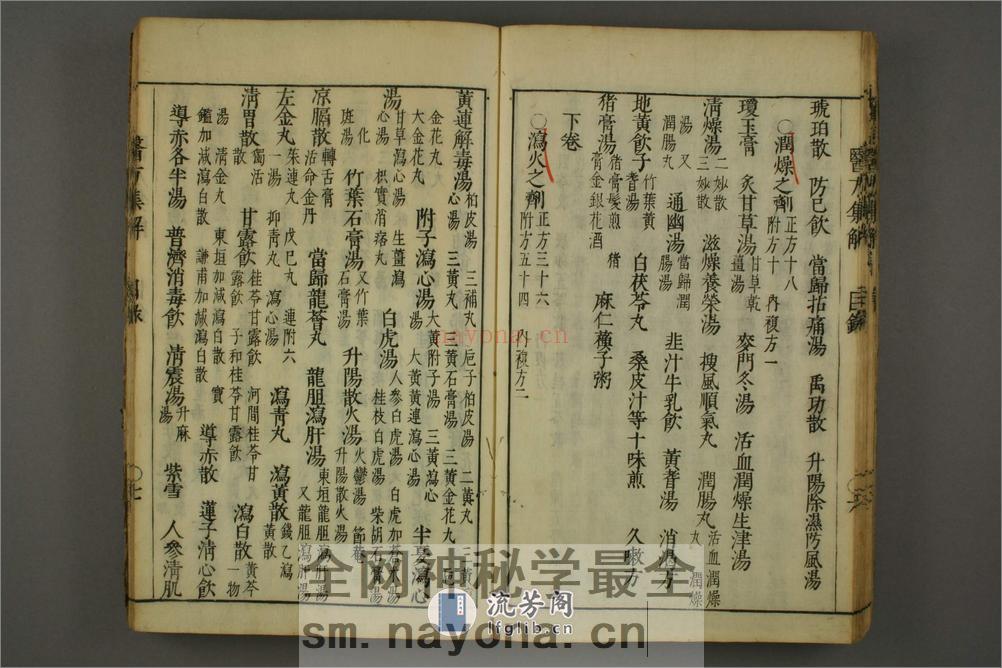 琥珀散 防己飲 當歸拈痛湯 禹功散 升陽除濕防風湯
○潤燥之劑 正方十八 附方十 內複方一
瓊玉膏 炙甘草湯 甘草乾薑湯 麥門冬湯 活血潤燥生津湯
清燥湯 二妙散 三妙散 滋燥養榮湯 搜風順氣丸 潤腸丸 活血潤燥丸 潤燥湯 又潤腸丸 通幽湯 當歸潤腸湯 韭汁牛乳飲 黃耆湯 消渴方
地黃飲子 竹葉黃耆湯 白茯苓丸 桑皮汁等十味煎 久嗽方
豬膏湯 豬膏髮煎 豬膏金銀花酒 麻仁蘇子粥
下卷
○瀉火之劑 正方三十六 附方五十四 內複方二
黃連解毒湯 柏皮湯 三補丸 梔子柏皮湯 二黃丸 三黃金花丸
大金花丸 附子瀉心湯 大黃附子湯 三黃瀉心湯 半夏瀉心湯
甘草瀉心湯 生薑瀉心湯 枳實消痞丸 白虎湯 人參白虎湯 桂枝白虎湯 白虎加蒼朮湯 柴胡石膏湯
化斑湯 竹葉石膏湯 又竹葉石膏湯 升陽散火湯 火鬱湯 升陽散火湯
涼膈散 轉舌膏 活命金丹 當歸龍薈丸 龍膽瀉肝湯 東垣龍膽瀉肝湯 又龍膽瀉肝湯
左金丸 茱連丸 戊己丸 連附六一湯 抑青丸 瀉心湯 瀉青丸 瀉黃散 錢乙瀉黃散
清胃散 甘露飲 桂苓甘露飲 子和桂苓甘露飲 河間桂苓甘露飲 瀉白散 黃芩一物湯 清金丸 東垣加減瀉白散 謙甫加減瀉白散 寶鑑加減瀉白散 導赤散 蓮子清心飲
導赤各半湯 普濟消毒飲 清震湯 升麻湯 紫雪 人參清肌
醫方集解 目錄
醫方集解 目錄
nayona.cn
全网神秘学最全
流芳阁
lfglib.cn
sm.nayona.cn